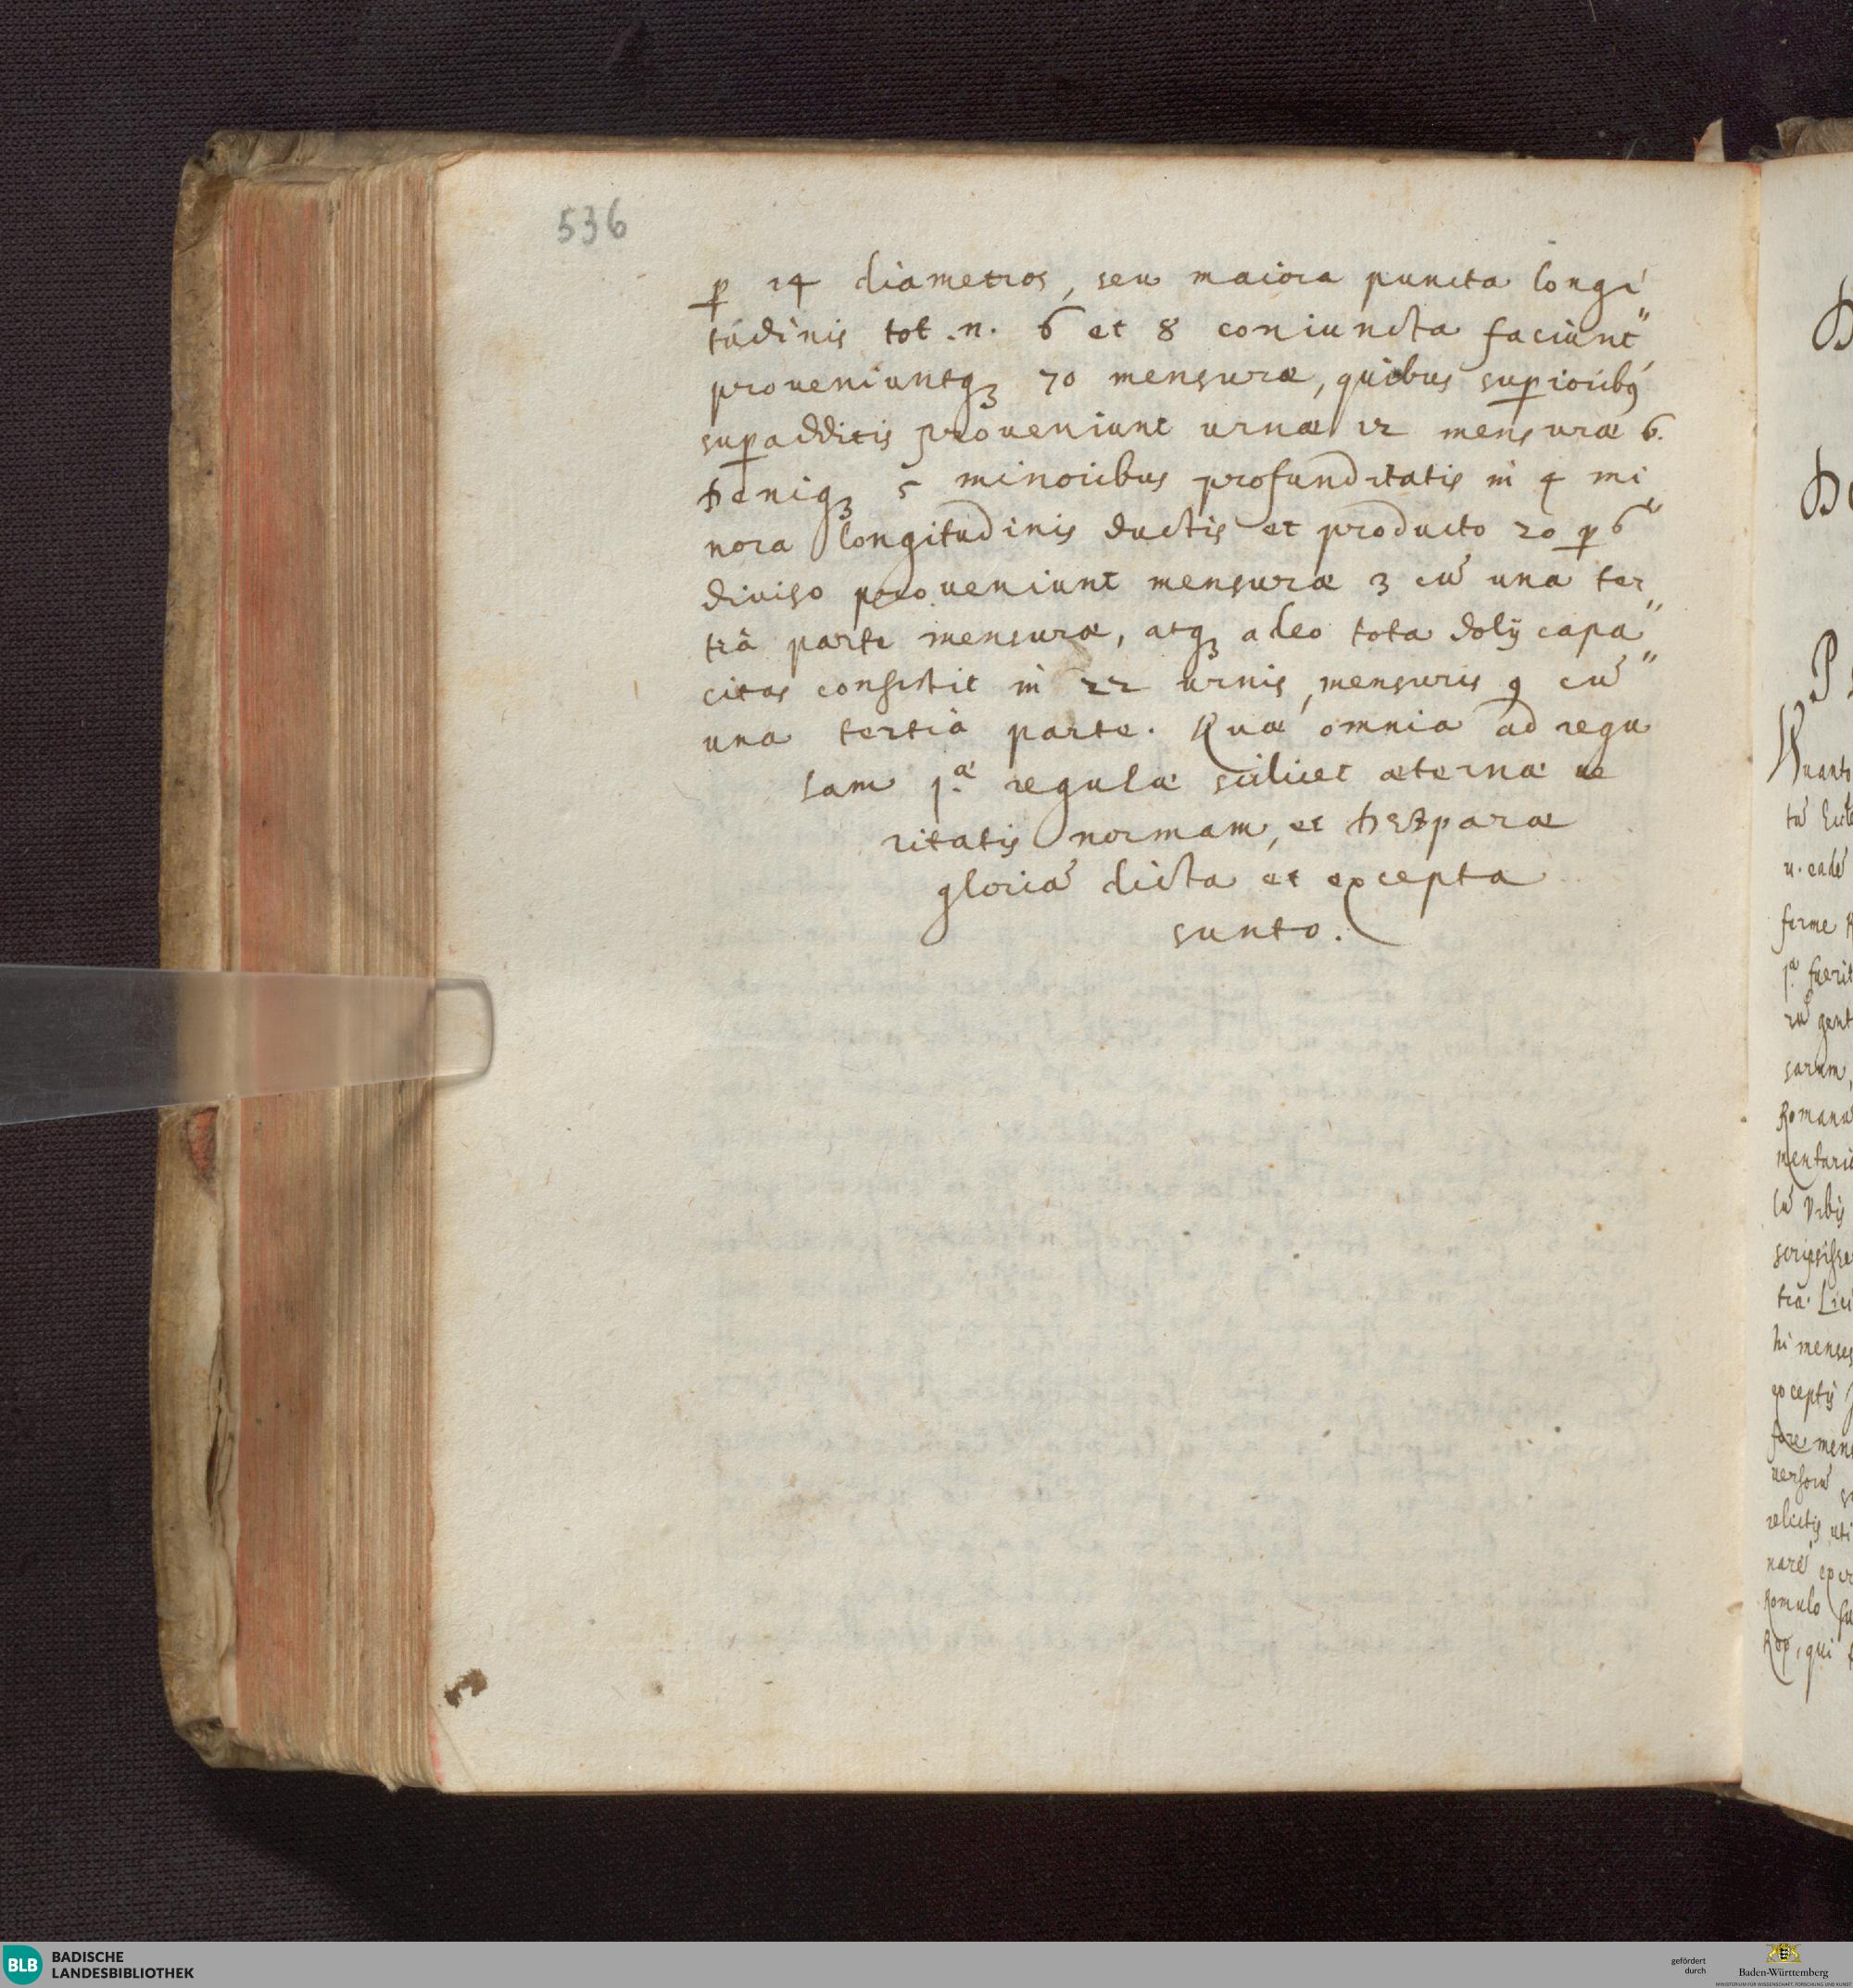 536
ꝑ 14 diametros, seu maiora puncta longi
tudinis tot .n. 6 et 8 coniuncta faciunt"
proueniuntqꝫ 70 mensuræ, quibus suꝑioribꝰ
suꝑadditis proueniunt urnæ 22 mensuræ 6.
Deniqꝫ 5 minoribus profunditatis in 4 mi"
nora longitudinis ductis et producto 20 ꝑ 6
diuiso proueniunt mensuræ 3 cū una ter"
tià parte mensuræ, atqꝫ adeo tota dolij capa"
citas consistit in 22 urnis, mensuris 9 cū
una tertià parte. Quæ omnia ad regu
lam 1.æ regulæ scilicet æternæ ue
ritatis normam, et Deiparæ
gloriā dicta et excepta
sunto.
Quant
ferme
1.a fuerit
gent
sarum,
Romana
mentari
hi menses
exceptis
fore men
relictis uti
Romulo fu
Rex, qui
BLB BADISCHE
LANDESBIBLIOTHEK
gefördert
durch
Baden-Württemberg
MINISTERIUM FÜR WISSENSCHAFT, FORSCHUNG UND KUNST